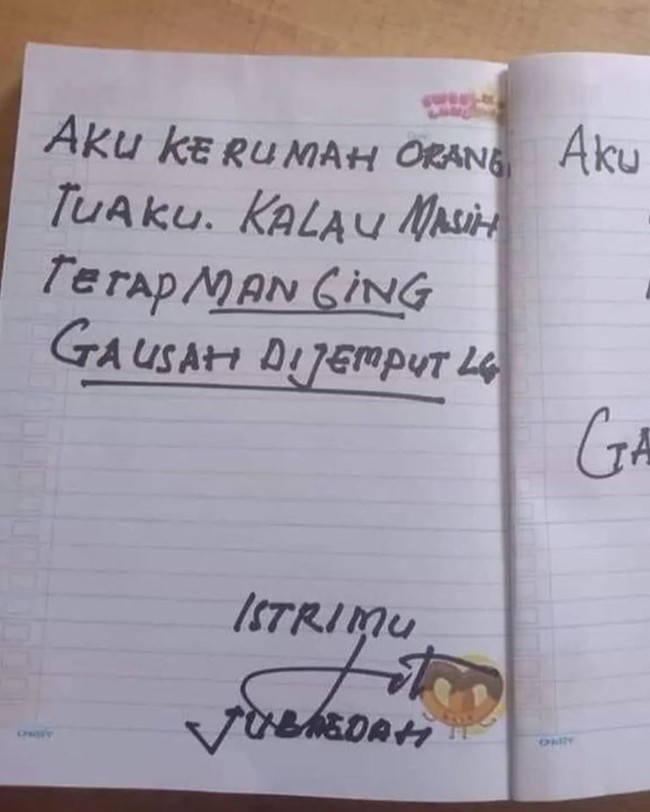 AKU KE RUMAH ORANG
TUAKU. KALAU MASIH
TETAP MANCING
GAUSAH DIJEMPUT LG
ISTRIMU
JUBAEDAH
AKU
GA